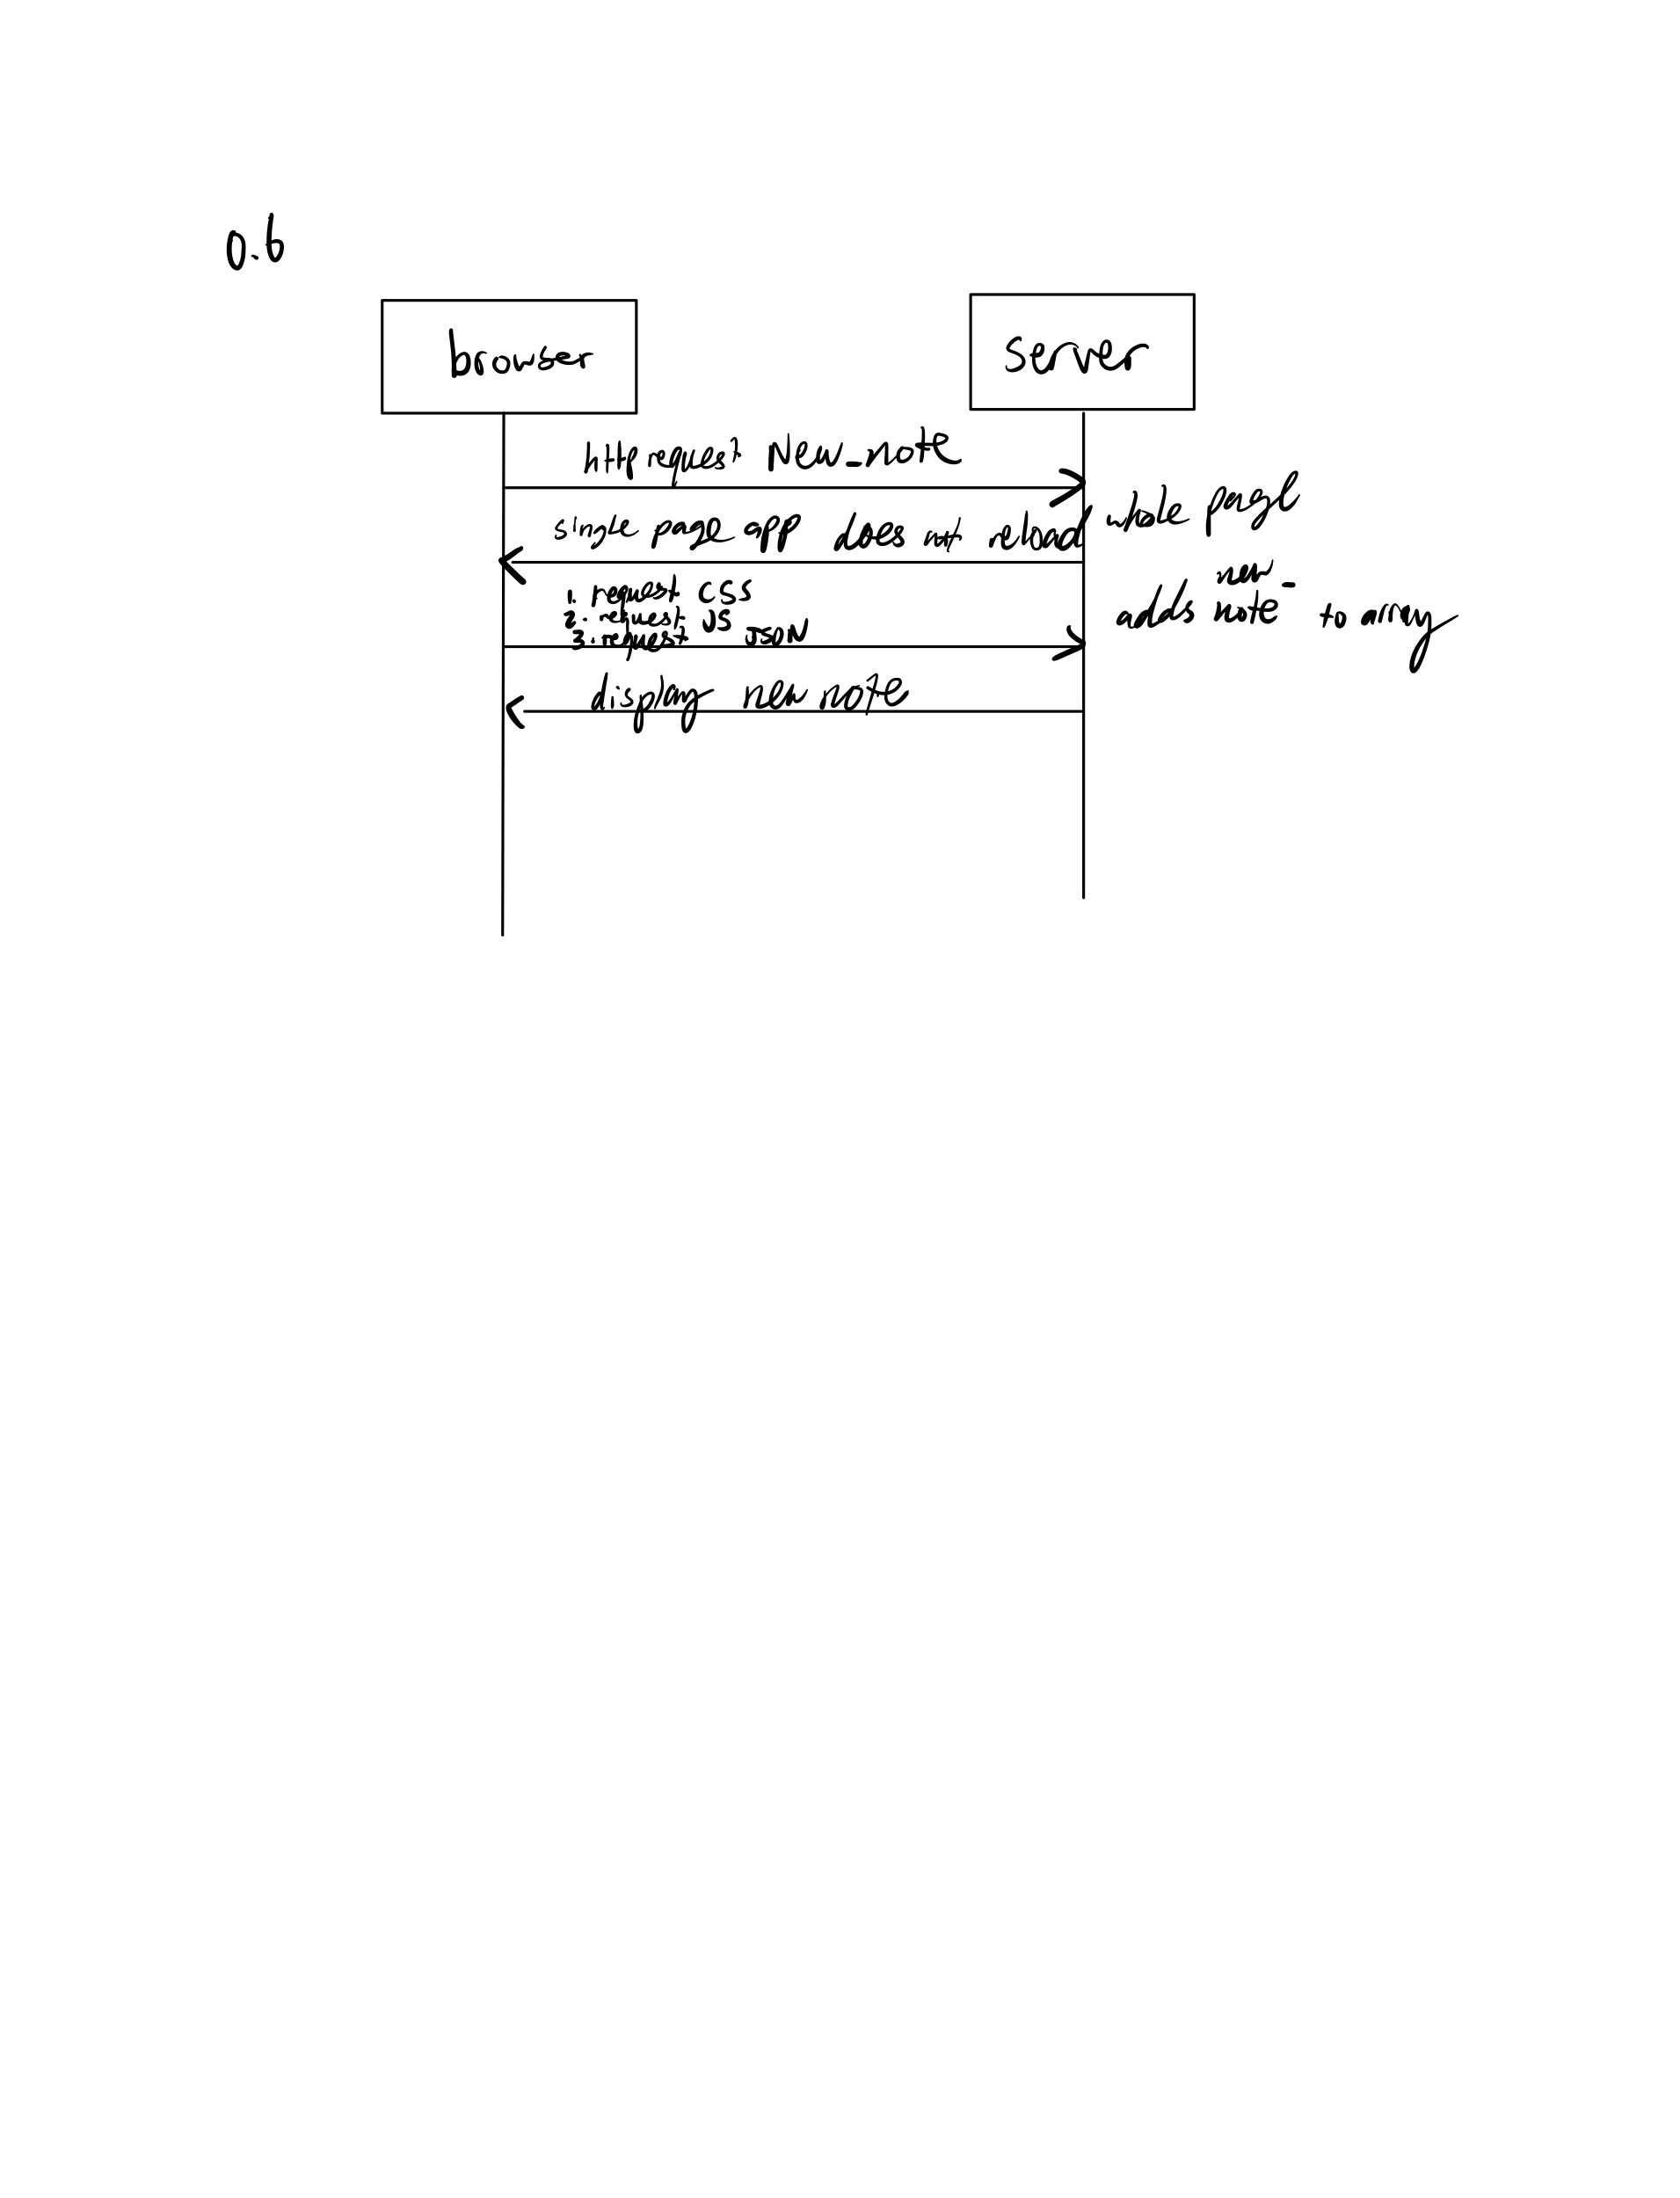 0.6
browser
server
http request New_note
single page app does not reload whole page
1. request css
2. request JS
3. request JSON
adds new_note to array
display new note